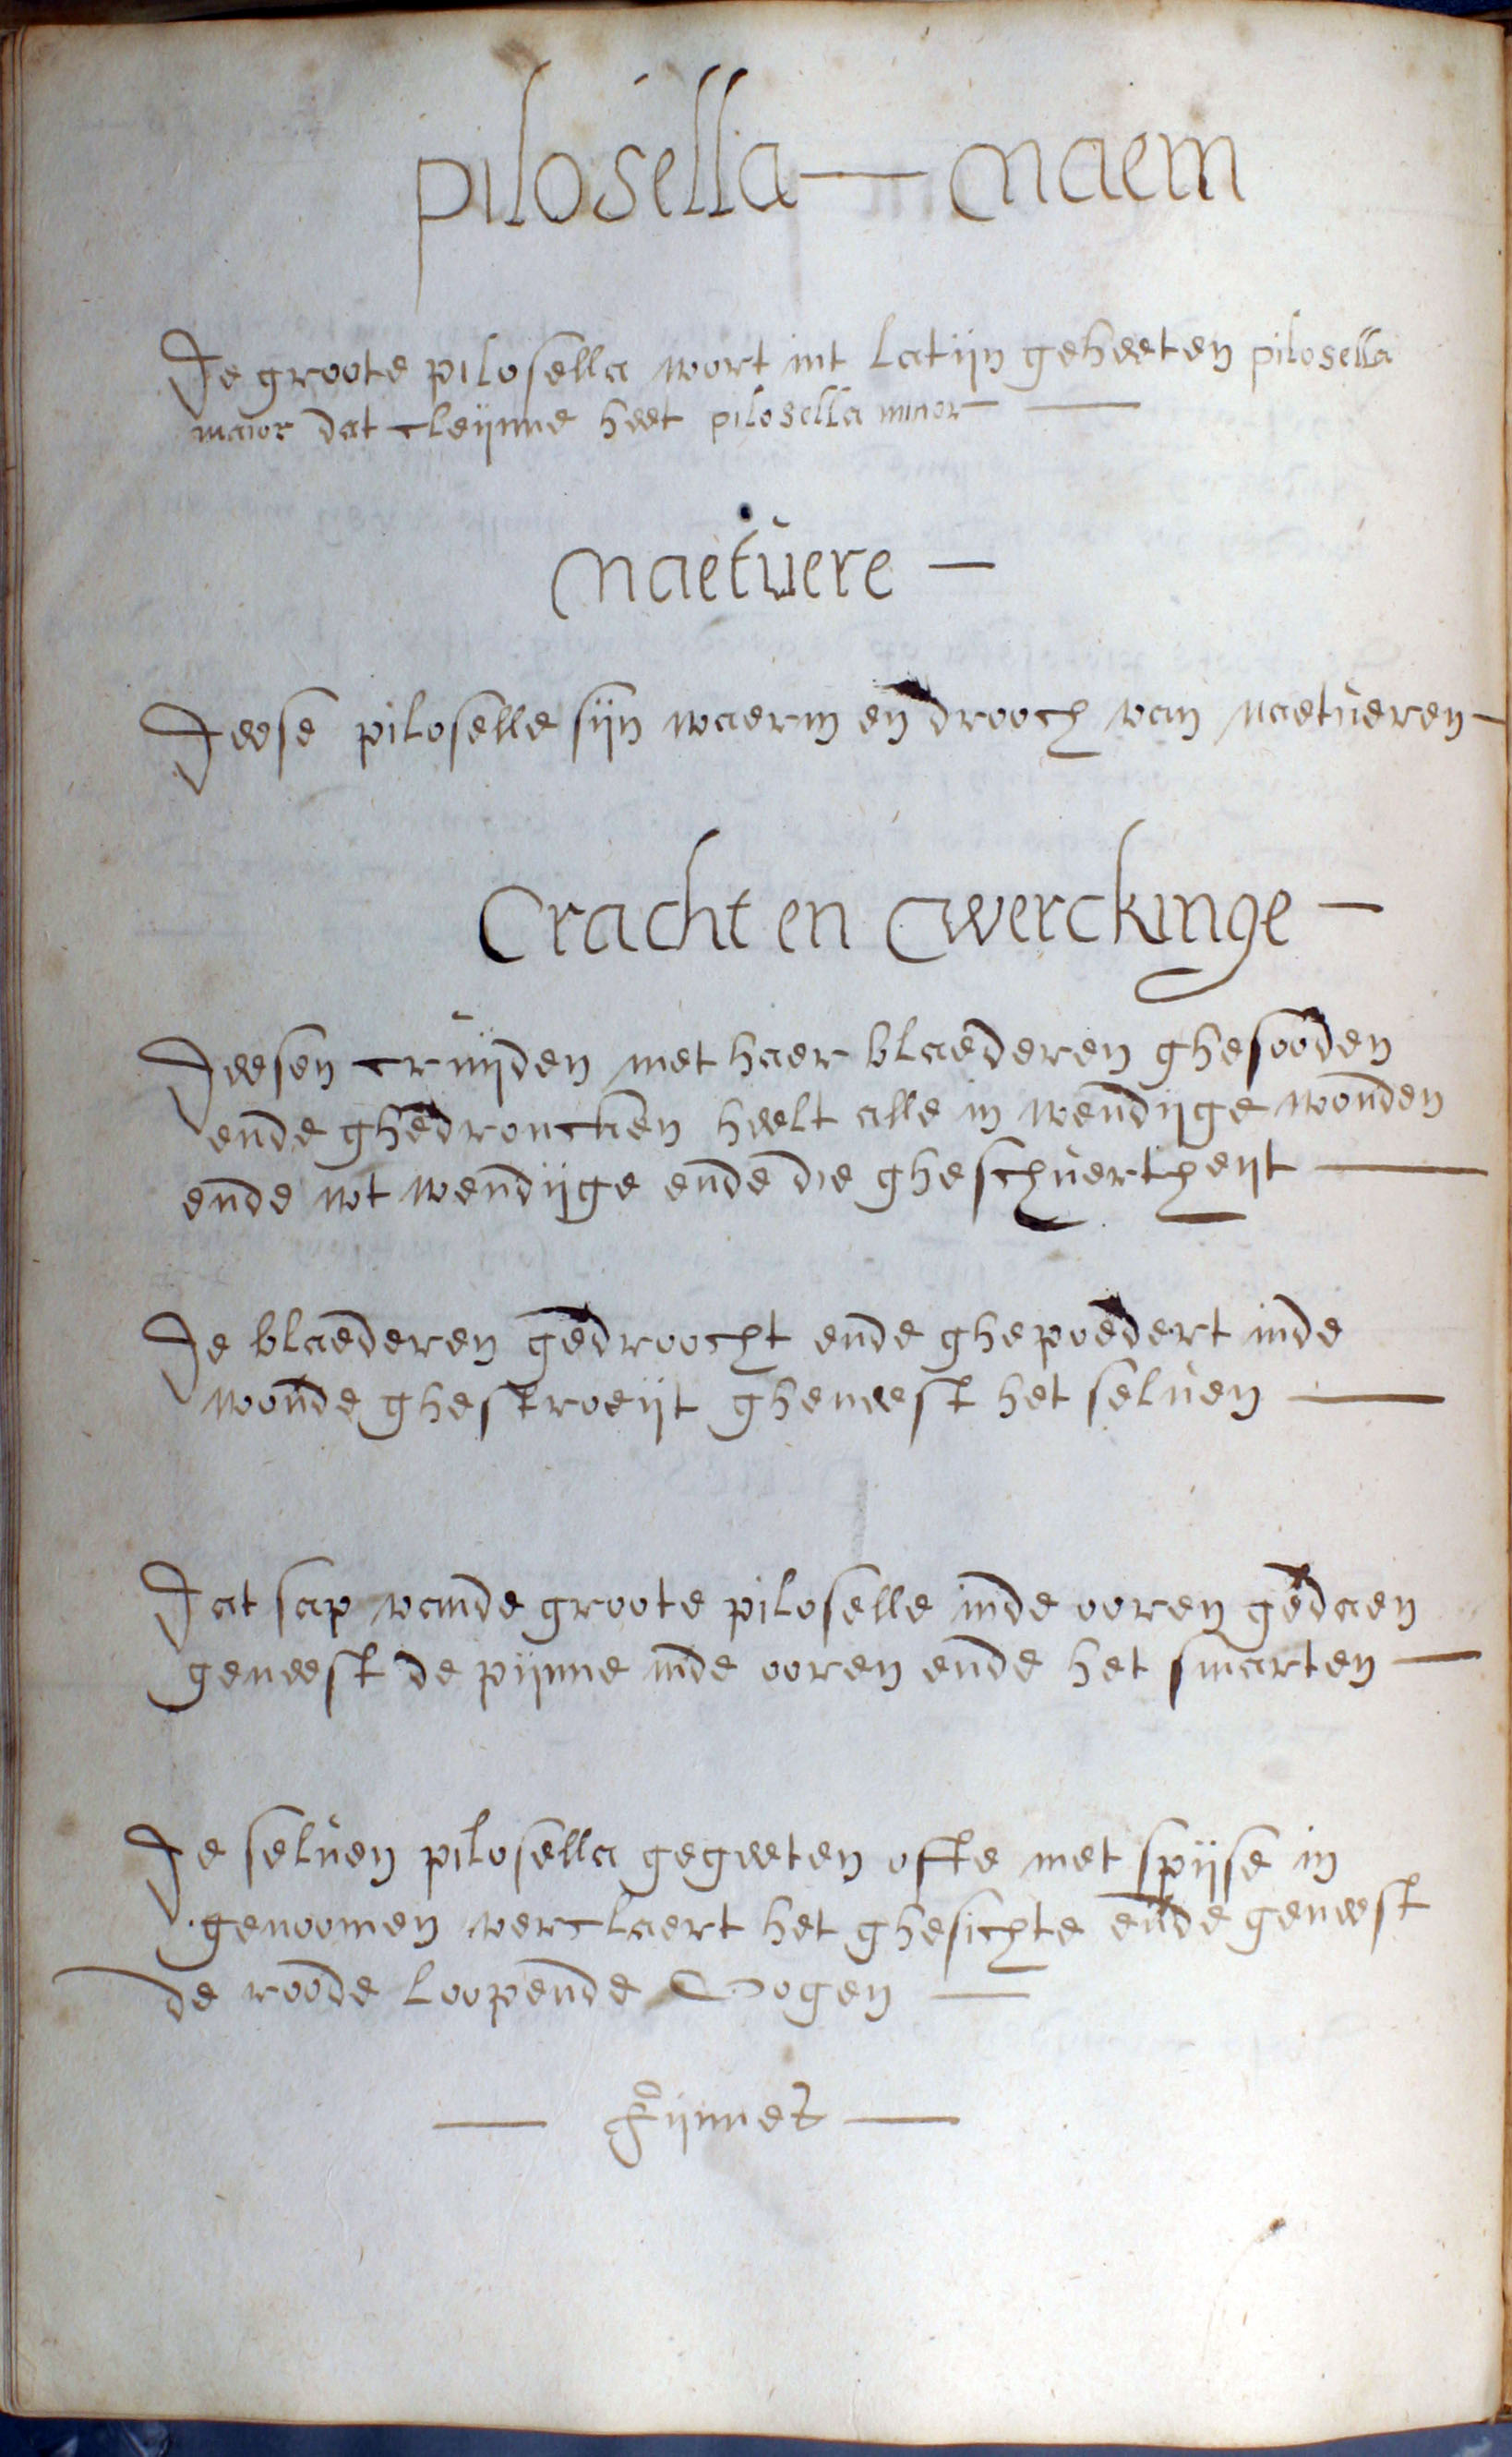 pilosella — naem
De groote pilosella wort int latijn geheeten pilosella
maior dat cleijnne heet pilosella minor —
naetuere —
Deese piloselle sijn waerm en drooch van naetueren —
Cracht en werckinge —
Deesen cruijden met haer blaederen ghesooden
ende ghedroncken heelt alle in wendijge wonden
ende wt wendijge ende die gheschuertheijt —
De blaederen gedroocht ende ghepoedert inde
wonde ghestroeijt gheneest het seluen —
Dat sap vande groote piloselle inde ooren gedaen
geneest de pijnne inde ooren ende het smarten —
De seluen pilosella gegeeten ofte met spijse in
genoomen verclaert het ghesichte ende geneest
de roode loopende Oogen —
— Fijnnes —